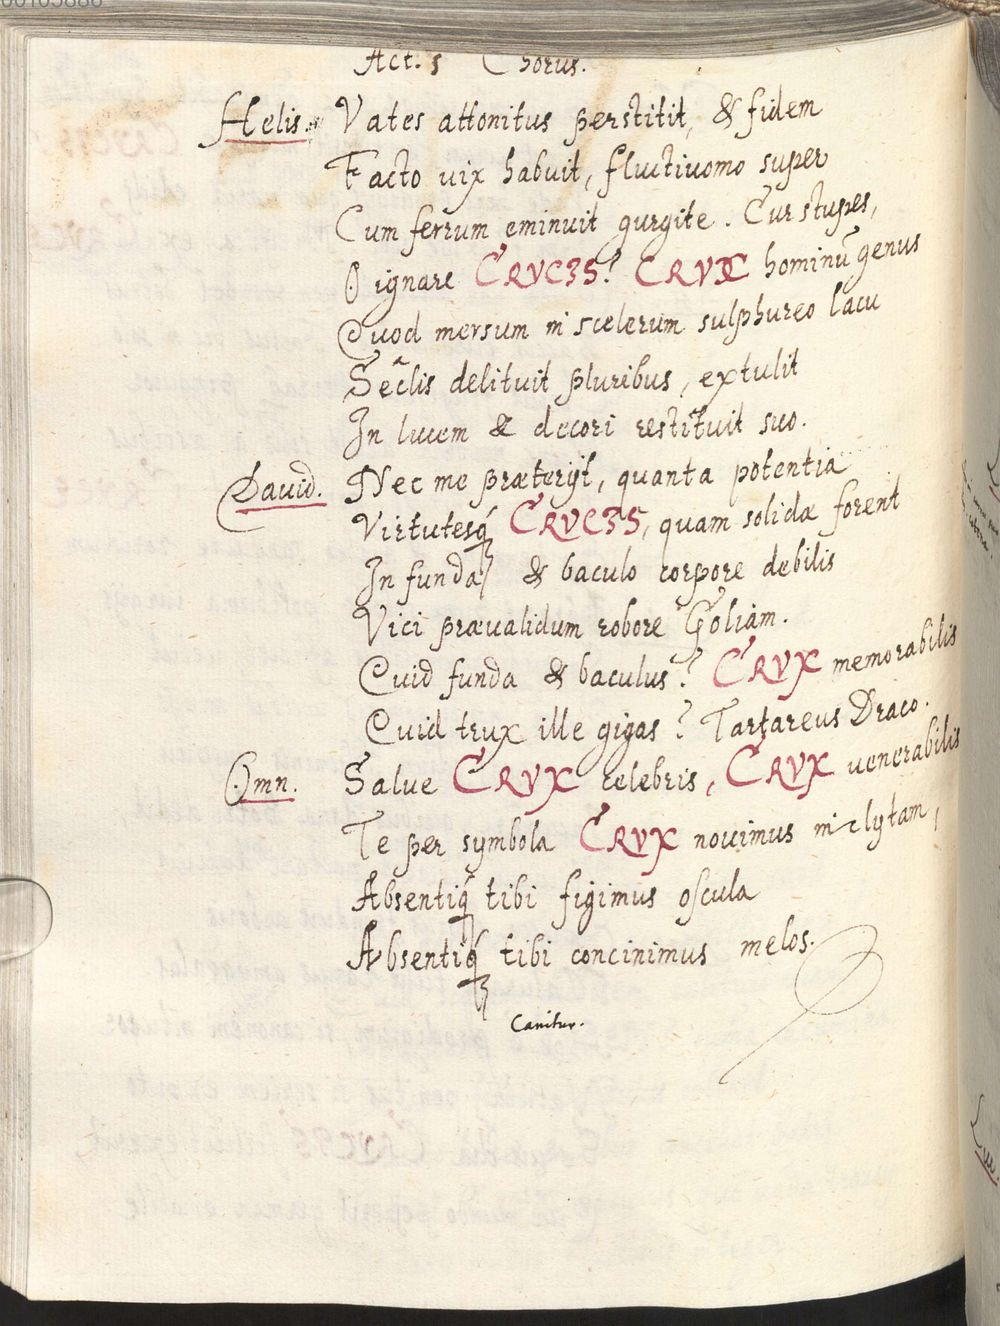 Act. 5 Chorus.
Helis. Vates attonitus perstitit, & fidem
Facto uix habuit, fluctiuomo super
Cum ferrum eminuit gurgite. Cur stupes,
O ignare CRVCIS? CRVX hominũ genus
Quod mersum in scelerum sulphureo lacu
Sec̃lis delituit pluribus, extulit
In lucem & decori restituit suo.
Dauid. Nec me præterijt, quanta potentia
Virtutesq́ꝫ CRVCIS, quam solidæ forent
In funda, & baculo corpore debilis
Vici præualidum robore Goliam.
Quid funda & baculus? CRVX memorabilis
Quid trux ille gigas? Tartareus Draco.
Omn. Salue CRVX celebris, CRVX uenerabilis
Te per symbola CRVX nouimus inclytam,
Absentiq́ꝫ tibi figimus oscula
Absentiq́ꝫ tibi concinimus melos.
Canitur.